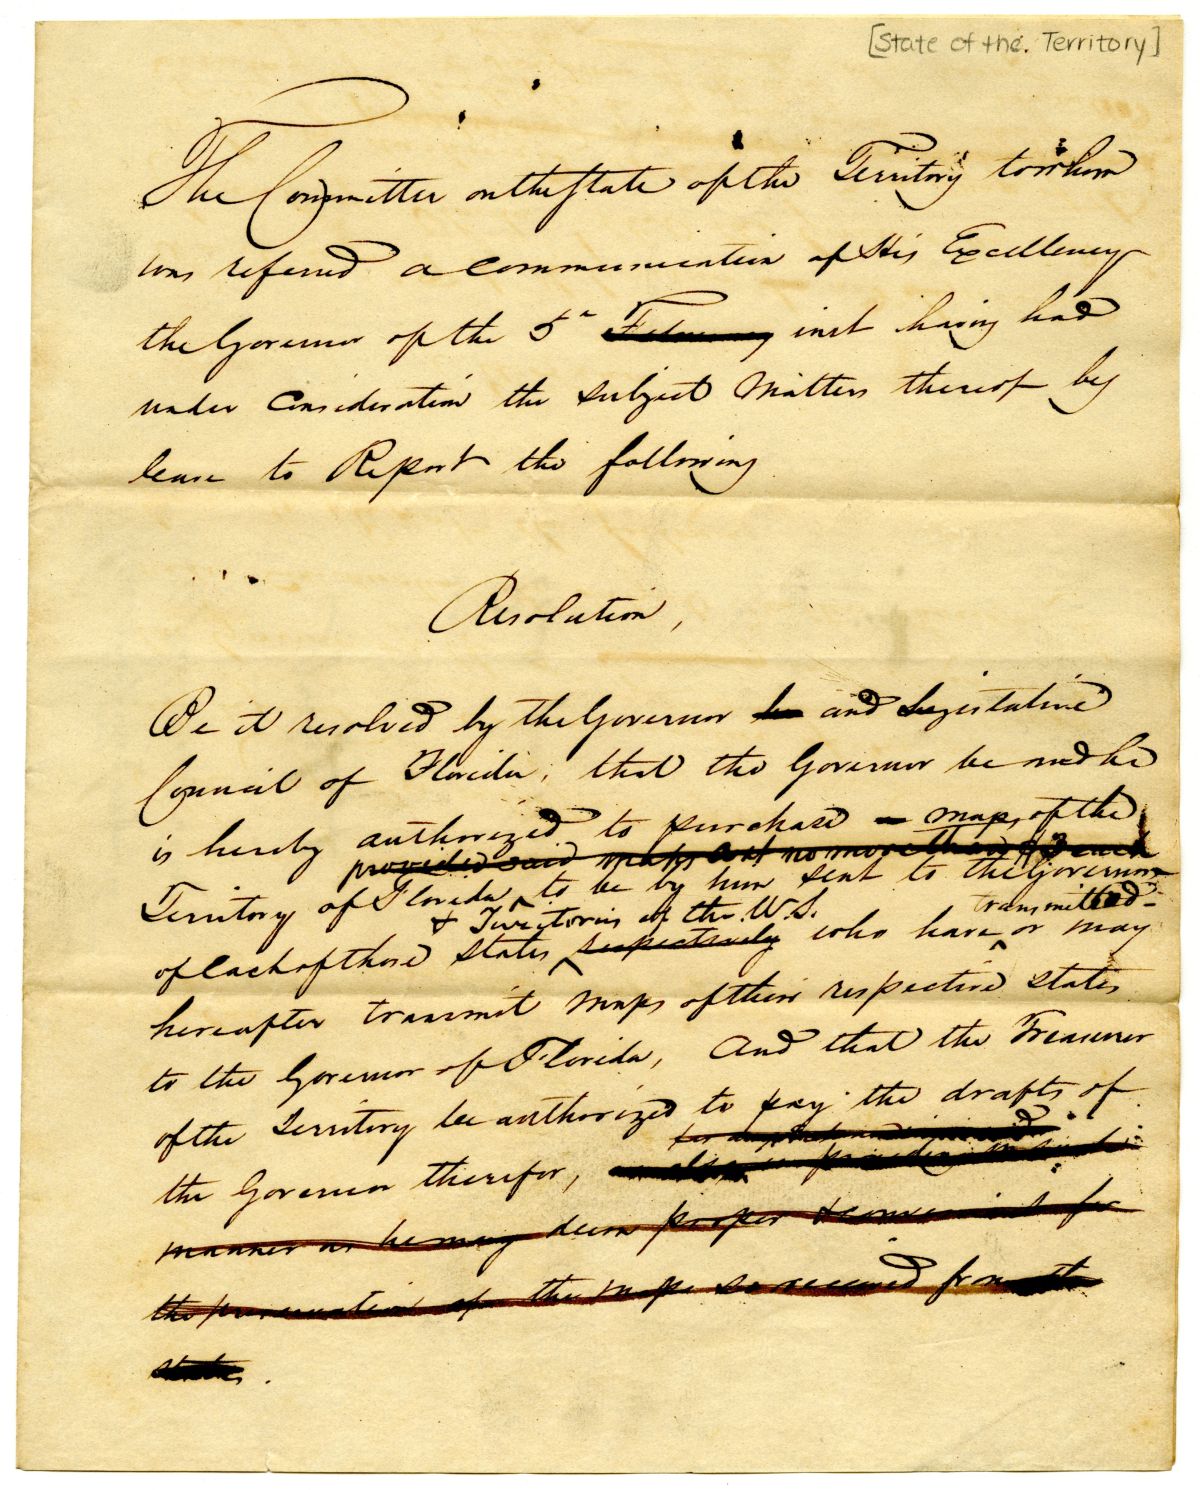 [State of the. Territory]
The Committee on the State of the Territory to whom
was referred a communication of His Excellency
the Governor of the 5th February inst having had
under consideration the subject matters thereof beg
leave to Report the following
Resolution,
Be it resolved by the Governor and Legistative
Council of Florida, that the Governor be and he
is hereby authorized to purchase maps of the
provided said maps cost no more than $ each
Territory of Florida to be by him sent to the Governor
& Territories of the U.S. transmitted
of each of those States respectively who have or may
hereafter transmit maps of their respective states
to the Governor of Florida, And that the Treasurer
of the Territory be authorized to pay the drafts of
the Governor therefor,
manner as he may deem proper & convenient for
the preservation of the maps so received from the
states.